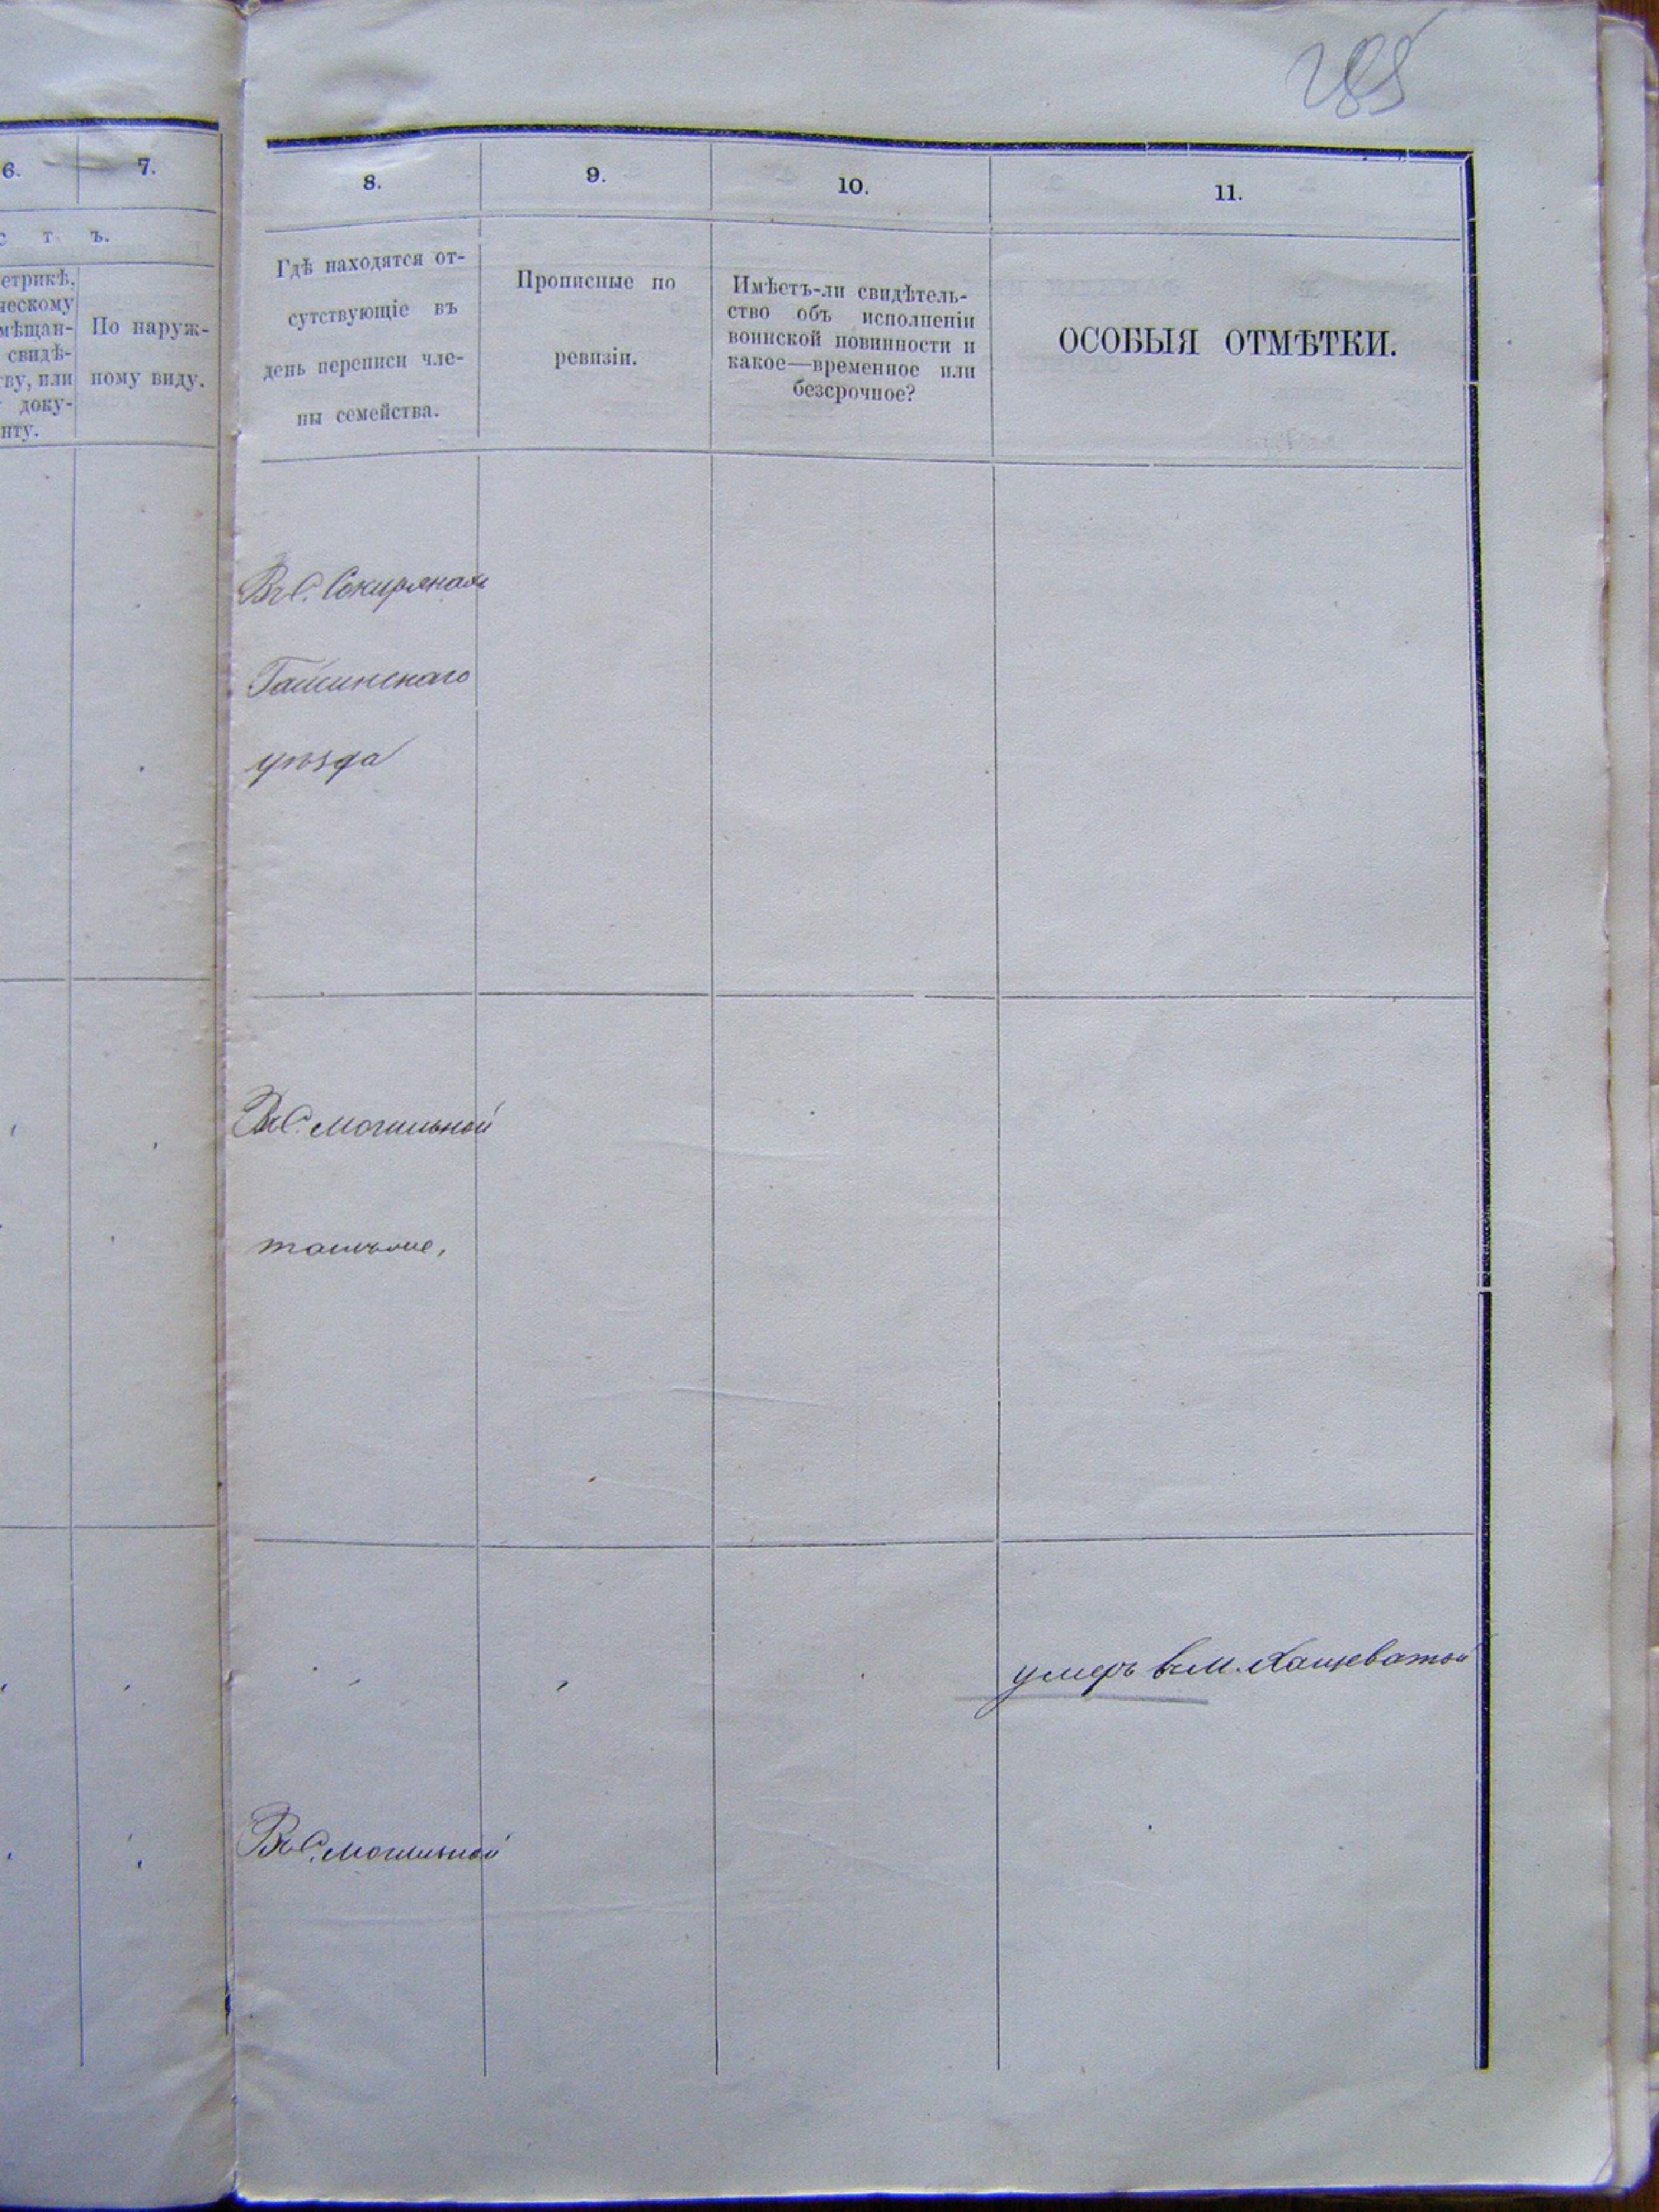 285
6.
7.
с т ъ.
етрикѣ,
ческому
мѣщан-
свидѣ-
тву, или
доку-
нту.
По наруж-
ному виду.
8.
9.
10.
11.
Гдѣ находятся от-
сутствующіе въ
день переписи чле-
ны семейства.
Прописные по
ревизіи.
Имѣетъ-ли свидѣтель-
ство объ исполненіи
воинской повинности и
какое—временное или
безсрочное?
ОСОБЫЯ ОТМѢТКИ.
Въ С. Секирянахъ
Гайсинскаго
уѣзда
Въ С. Могильной
умеръ въ М. Хащеватой
Въ С. Могильной